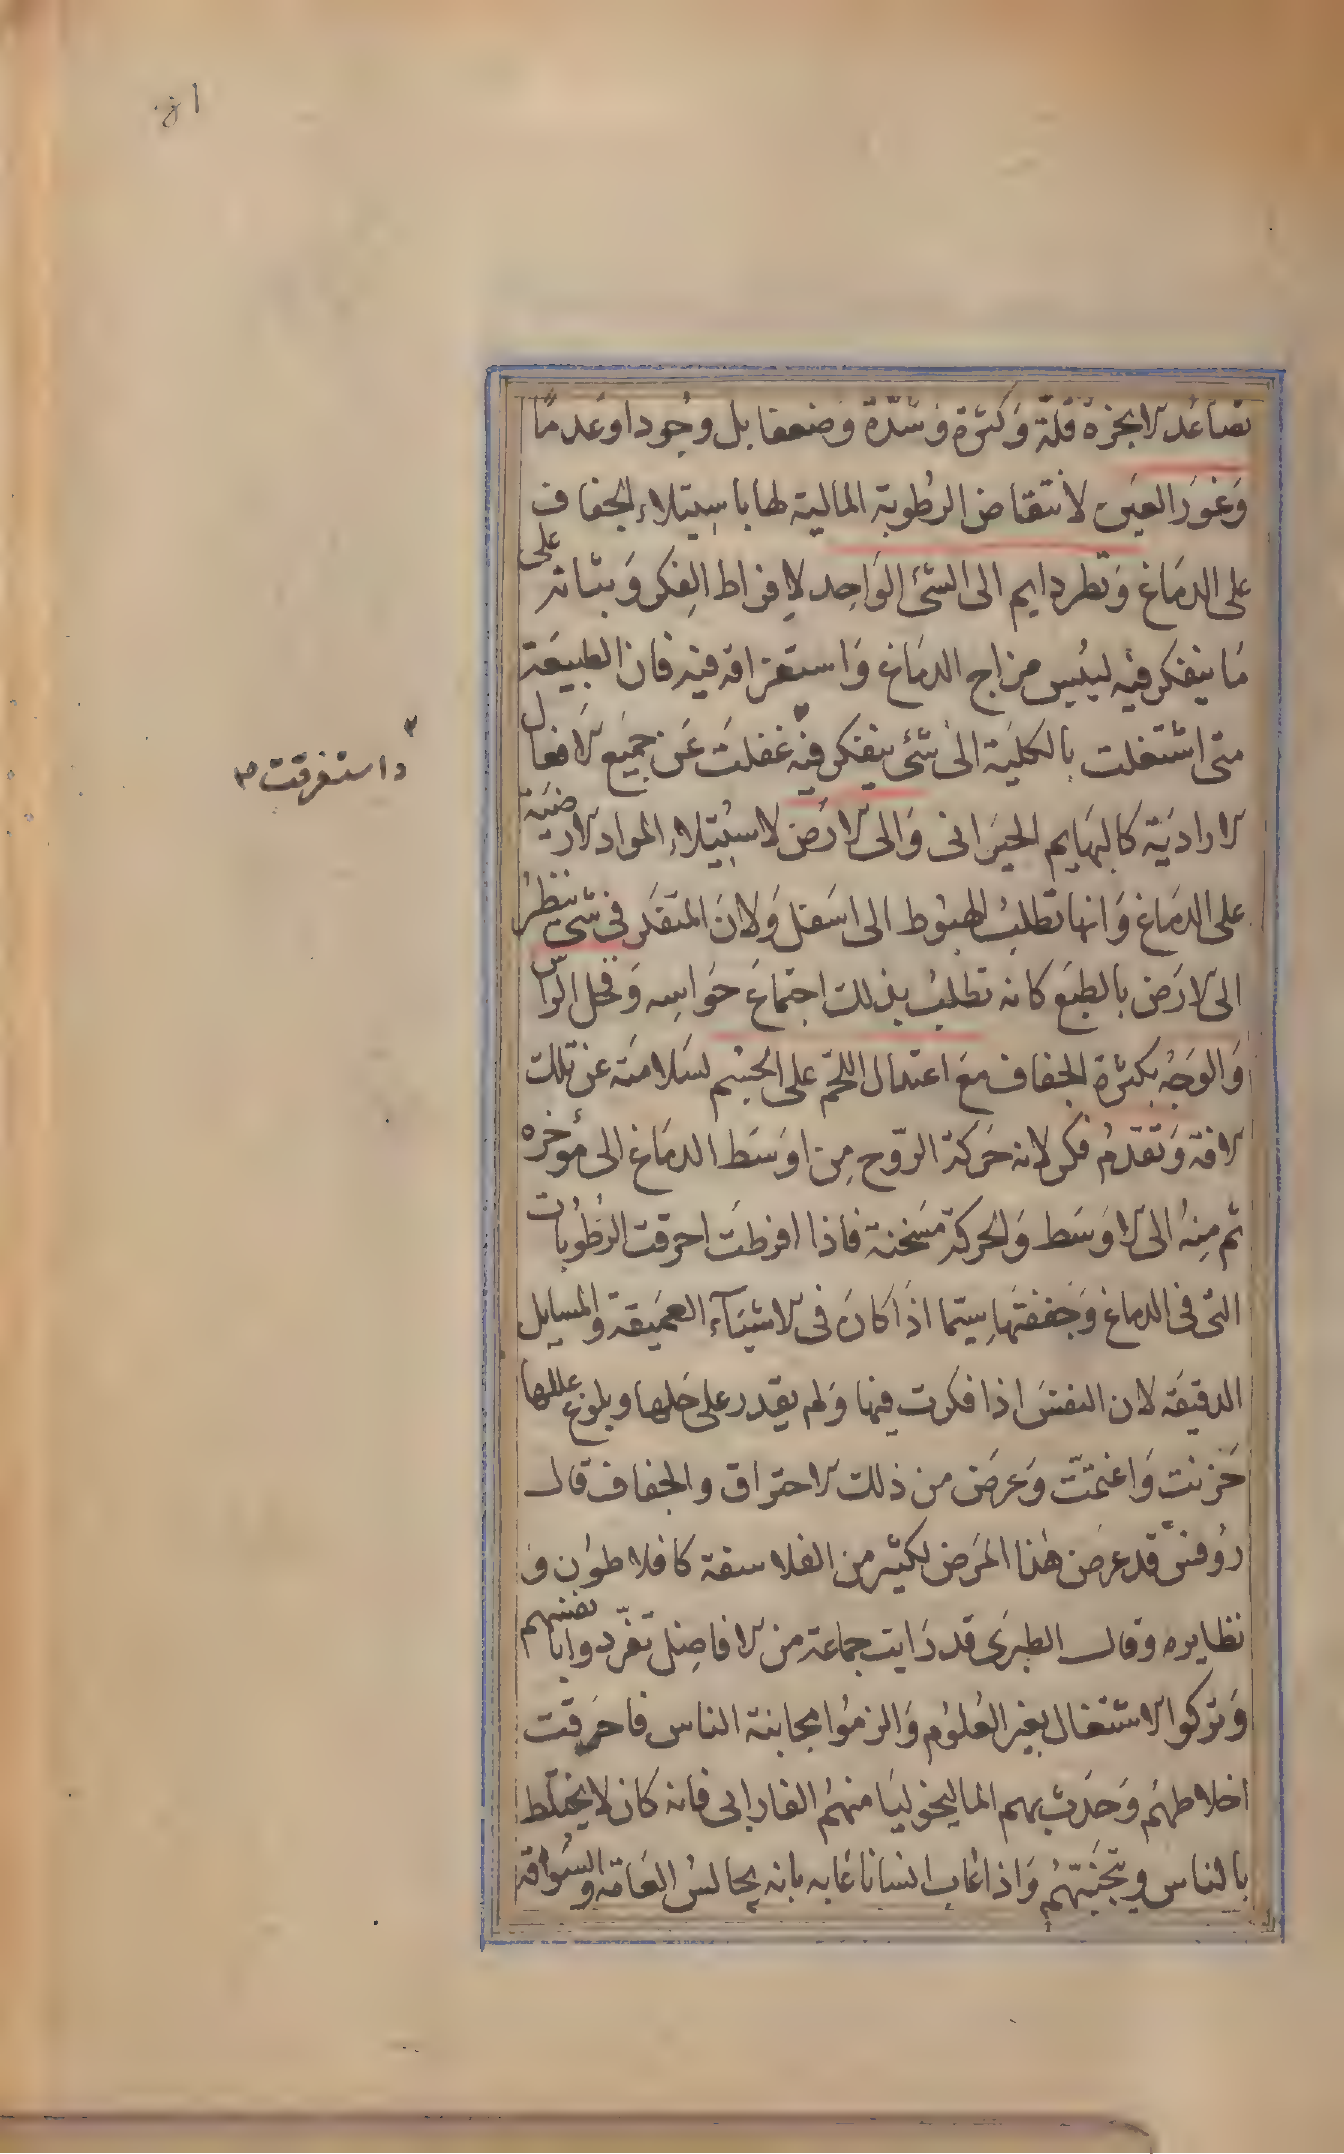 تصاعد الابخرة قلة وكثرة وشدة وضعفا بل وجودا وعدما
وغور العين لانتقاض الرطوبة المالية لها باستيلاء الجفاف
على الدماغ ونظر دايم الى الشئ الواحد لافراط الفكر وبثباته على
ما يتفكر فيه ليبس مزاج الدماغ واستغراقه فيه فان الطبيعة
متى اشتغلت بالكلية الى شئ يتفكر فيه غفلت عن جميع الافعال
واستغرقت
الارادية كالبهايم الحيرانى والى الارض لاستيلاء المواد الارضية
على الدماغ وانها تطلب الهبوط الى اسفل ولان المتفكر فى شئ ينظر
الى الارض بالطبع كانه تطلب بذلك اجتماع حواسه وقحل الراس
والوجه بكثرة الجفاف مع اعتدال اللحم على الجسم لسلامته عن تلك
الافة وتقدم فكر لانه حركة الروح من اوسط الدماغ الى مؤخره
ثم منه الى الاوسط والحركة مسخنة فاذا افرطت احرقت الرطوبات
التى فى الدماغ وجففتها سيما اذا كان فى الاشيآء العميقة والمسايل
الدقيقة لان النفس اذا فكرت فيها ولم يقدر على حلها وبلوغ عللها
حزنت واغتمت وعرض من ذلك الاحتراق والجفاف قال
روفس قد عرض هذا المرض لكثير من الفلاسفة كافلاطون و
نظايره وقال الطبرى قد رايت جماعة من الافاضل تفردوا بانفسهم
وتركوا الاشتغال بغير العلوم والزموا مجانبة الناس فاحرقت
اخلاطهم وحدث بهم الماليخوليا منهم الفارابى فانه كان لا يختلط
بالناس ويتجنبهم واذا عاب انسانا عابه بانه يجالس العامة والسواقة